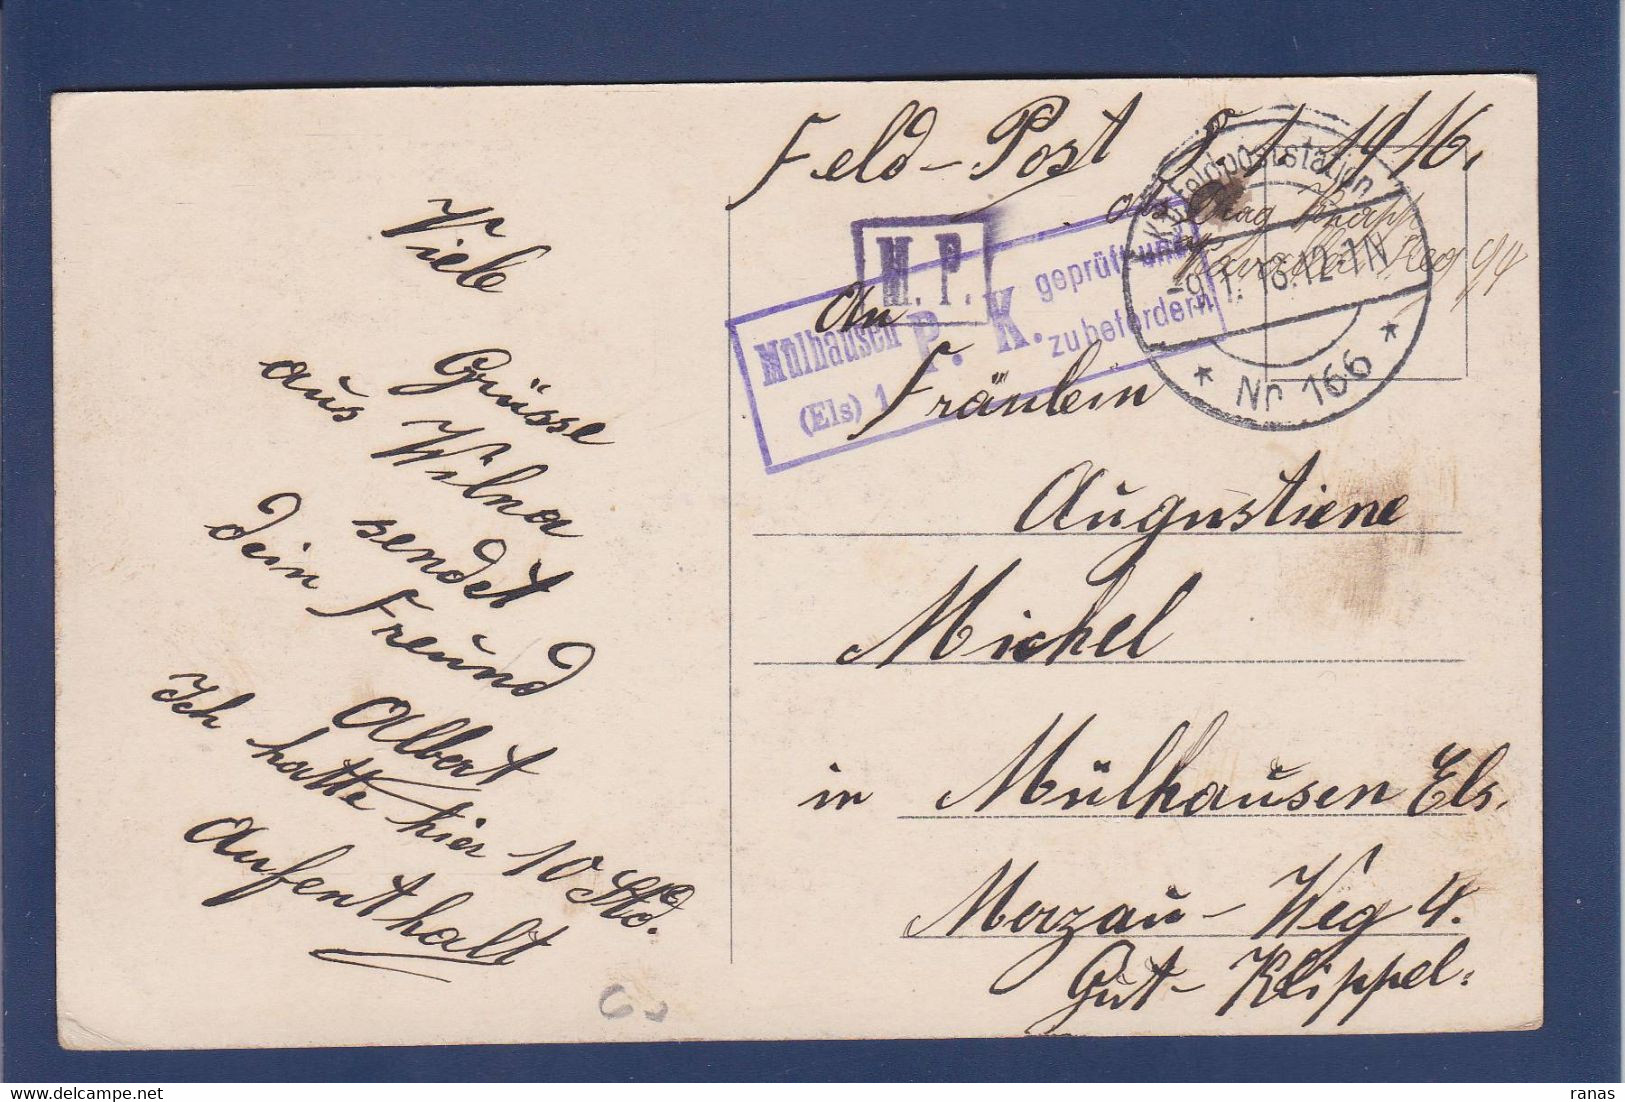 Viele
Grüsse
aus Wilna
sendet
dein Freund
Albert
Ich hatte hier 10 Std.
Aufenthalt
Feld-Post 8.1.1916.
Feldpoststation
-9.1.16.12-1N
* Nr 166 *
M. P.
Mülhausen P. K. geprüft und
(Els) 1 zu befördern
An
Fräulein
Augustiene
Michel
in Mülhausen Els.
Morzau-Weg 4.
Gut-Klippel.
ranas
delcampe.net